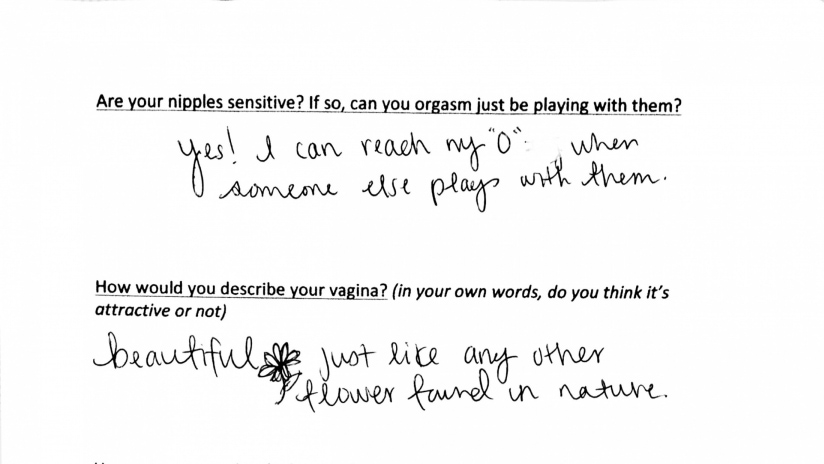 Are your nipples sensitive? If so, can you orgasm just be playing with them?
yes! I can reach my "O" when
someone else plays with them.
How would you describe your vagina? (in your own words, do you think it's
attractive or not)
beautiful just like any other
flower found in nature.